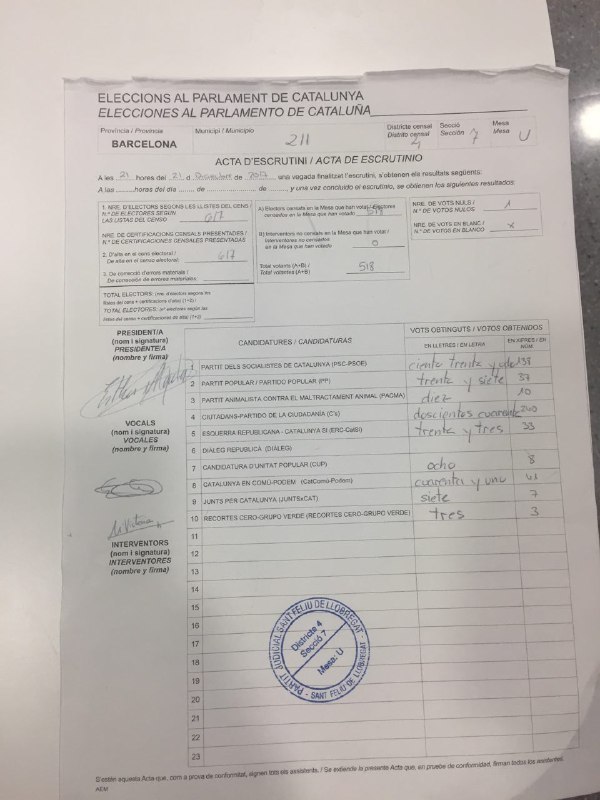 ELECCIONS AL PARLAMENT DE CATALUNYA
ELECCIONES AL PARLAMENTO DE CATALUÑA
Província / Provincia
BARCELONA
Municipi / Municipio
211
Districte censal
Distrito censal 4
Secció
Sección 7
Mesa
Mesa U
ACTA D'ESCRUTINI / ACTA DE ESCRUTINIO
A les 21 hores del 21 d Diciembre de 2017 una vegada finalitzat l'escrutini, s'obtenen els resultats següents:
A las horas del día de de y una vez concluido el escrutinio, se obtienen los siguientes resultados:
1. NRE. D'ELECTORS SEGONS LES LLISTES DEL CENS /
N.º DE ELECTORES SEGÚN
LAS LISTAS DEL CENSO 617
NRE. DE CERTIFICACIONS CENSALS PRESENTADES /
N.º DE CERTIFICACIONES CENSALES PRESENTADAS
2. D'alta en el cens electoral /
De alta en el censo electoral: 617
3. De correcció d'errors materials /
De corrección de errores materiales
TOTAL ELECTORS: (nre. d'electors segons les
llistes del cens + certificacions d'alta) (1+2) /
TOTAL ELECTORES: (nº electores según las
listas del censo + certificaciones de alta) (1+2)
A) Electors censats en la Mesa que han votat / Electores
censados en la Mesa que han votado 518
B) Interventors no censats en la Mesa que han votat /
Interventores no censados
en la Mesa que han votado 0
Total votants (A+B) /
Total votantes (A+B) 518
NRE. DE VOTS NULS /
N.º DE VOTOS NULOS 1
NRE. DE VOTS EN BLANC /
N.º DE VOTOS EN BLANCO
PRESIDENT/A
(nom i signatura)
PRESIDENTE/A
(nombre y firma)
VOCALS
(nom i signatura)
VOCALES
(nombre y firma)
INTERVENTORS
(nom i signatura)
INTERVENTORES
(nombre y firma)
CANDIDATURES / CANDIDATURAS
VOTS OBTINGUTS / VOTOS OBTENIDOS
EN LLETRES / EN LETRA
EN XIFRES / EN NÚM.
1 PARTIT DELS SOCIALISTES DE CATALUNYA (PSC-PSOE) ciento trenta y ocho 138
2 PARTIT POPULAR / PARTIDO POPULAR (PP) trenta y siete 37
3 PARTIT ANIMALISTA CONTRA EL MALTRACTAMENT ANIMAL (PACMA) diez 10
4 CIUTADANS-PARTIDO DE LA CIUDADANÍA (C's) doscientos cuarenta 240
5 ESQUERRA REPUBLICANA - CATALUNYA SÍ (ERC-CatSí) trenta y tres 33
6 DIÀLEG REPUBLICÀ (DIÀLEG)
7 CANDIDATURA D'UNITAT POPULAR (CUP) ocho 8
8 CATALUNYA EN COMÚ-PODEM (CatComú-Podem) cuarenta y uno 41
9 JUNTS PER CATALUNYA (JUNTSxCAT) siete 7
10 RECORTES CERO-GRUPO VERDE (RECORTES CERO-GRUPO VERDE) tres 3
11
12
13
14
15
16
17
18
19
20
21
22
23
PARTIT JUDICIAL SANT FELIU DE LLOBREGAT - SANT FELIU DE LLOBREGAT -
Districte 4
Secció 7
Mesa: U
S'estén aquesta Acta que, com a prova de conformitat, signen tots els assistents. / Se extiende la presente Acta que, en prueba de conformidad, firman todos los asistentes.
AEM